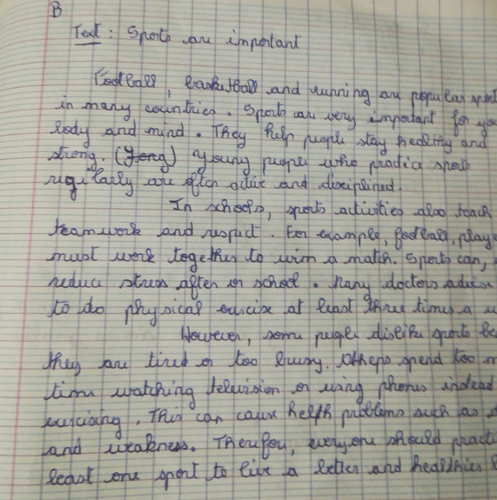 B
Text : Sports are important
Football, basketball and running are popular spor
in many countries. Sports are very important for you
body and mind. They help people stay healthy and
strong. (Yong) Young people who practice sports
regularly are often active and disciplined.
In schools, sports activities also teach
teamwork and respect. For example, football, playe
must work together to wim a match. Sports can,
reduce stress after or school. Many doctors advise
to do physical exercise at least three times a w
However, some people dislike sports be
they are tired or too bussy. Others spend too m
time watching television or using phones instead
exercising. This can cause helth problems such as s
and weakness. Therefor, everyone should practi
least one sport to live a better and healthier